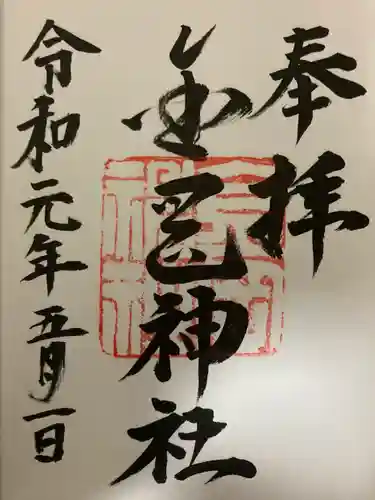 奉拝
金 神社
令和元年五月一日